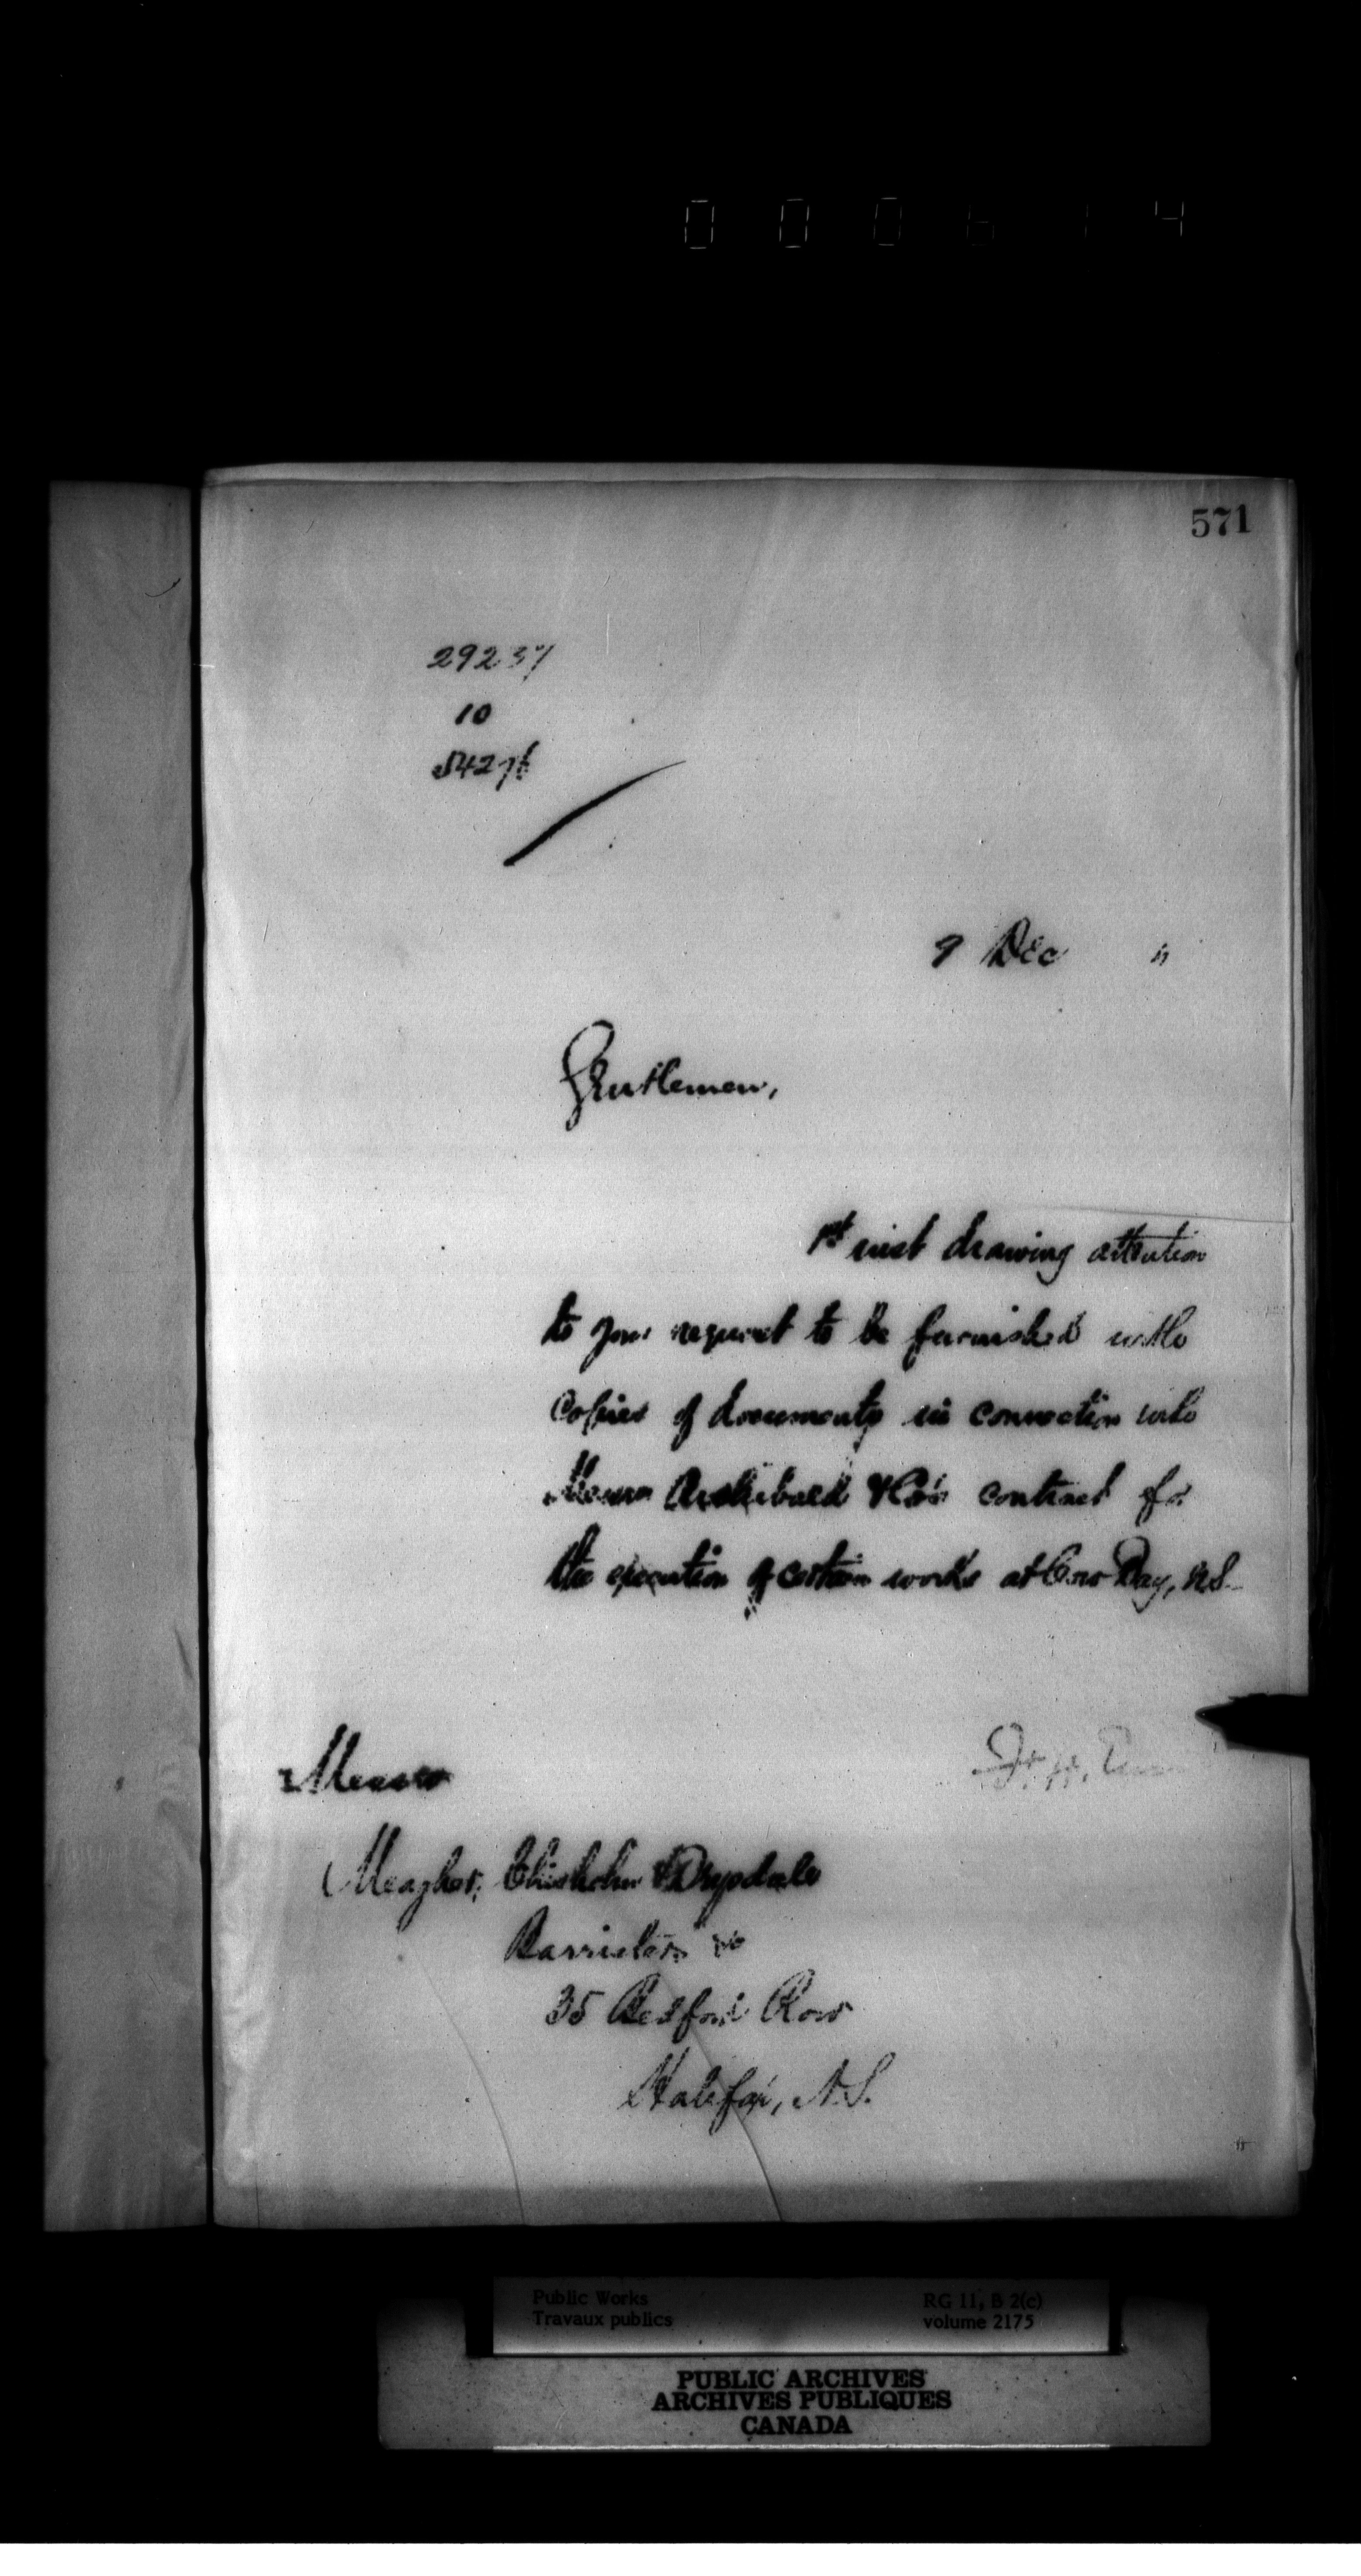 000614
571
29237
10
54276
9 Dec "
Gentlemen,
1st inst drawing attention
to your request to be furnished with
copies of documents in connection with
Messrs Archibald & Co's contract for
the execution of certain works at Cow Bay, N.S.
Messrs
Meagher, Chisholm & Drysdale
Barristers &c
35 Bedford Row
Halifax, N.S.
Public Works
Travaux publics
RG 11, B 2(c)
volume 2175
PUBLIC ARCHIVES
ARCHIVES PUBLIQUES
CANADA